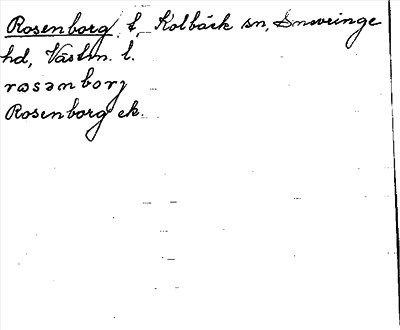 Rosenborg t, Kolbäck sn, Snevringe
hd, Västm. l.
rosənborj
Rosenborg ek.